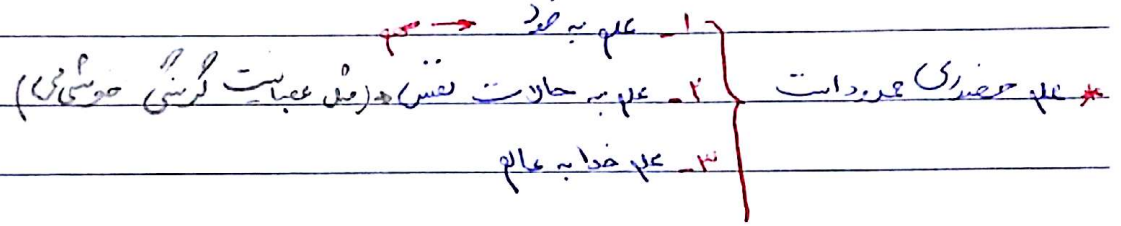 * علم حضوری محدود است
۱- علم به خود ← مهم
۲- علم به حالات نفس (مثل عصبانیت گرسنگی خوشحالی)
۳- علم خدا به عالم